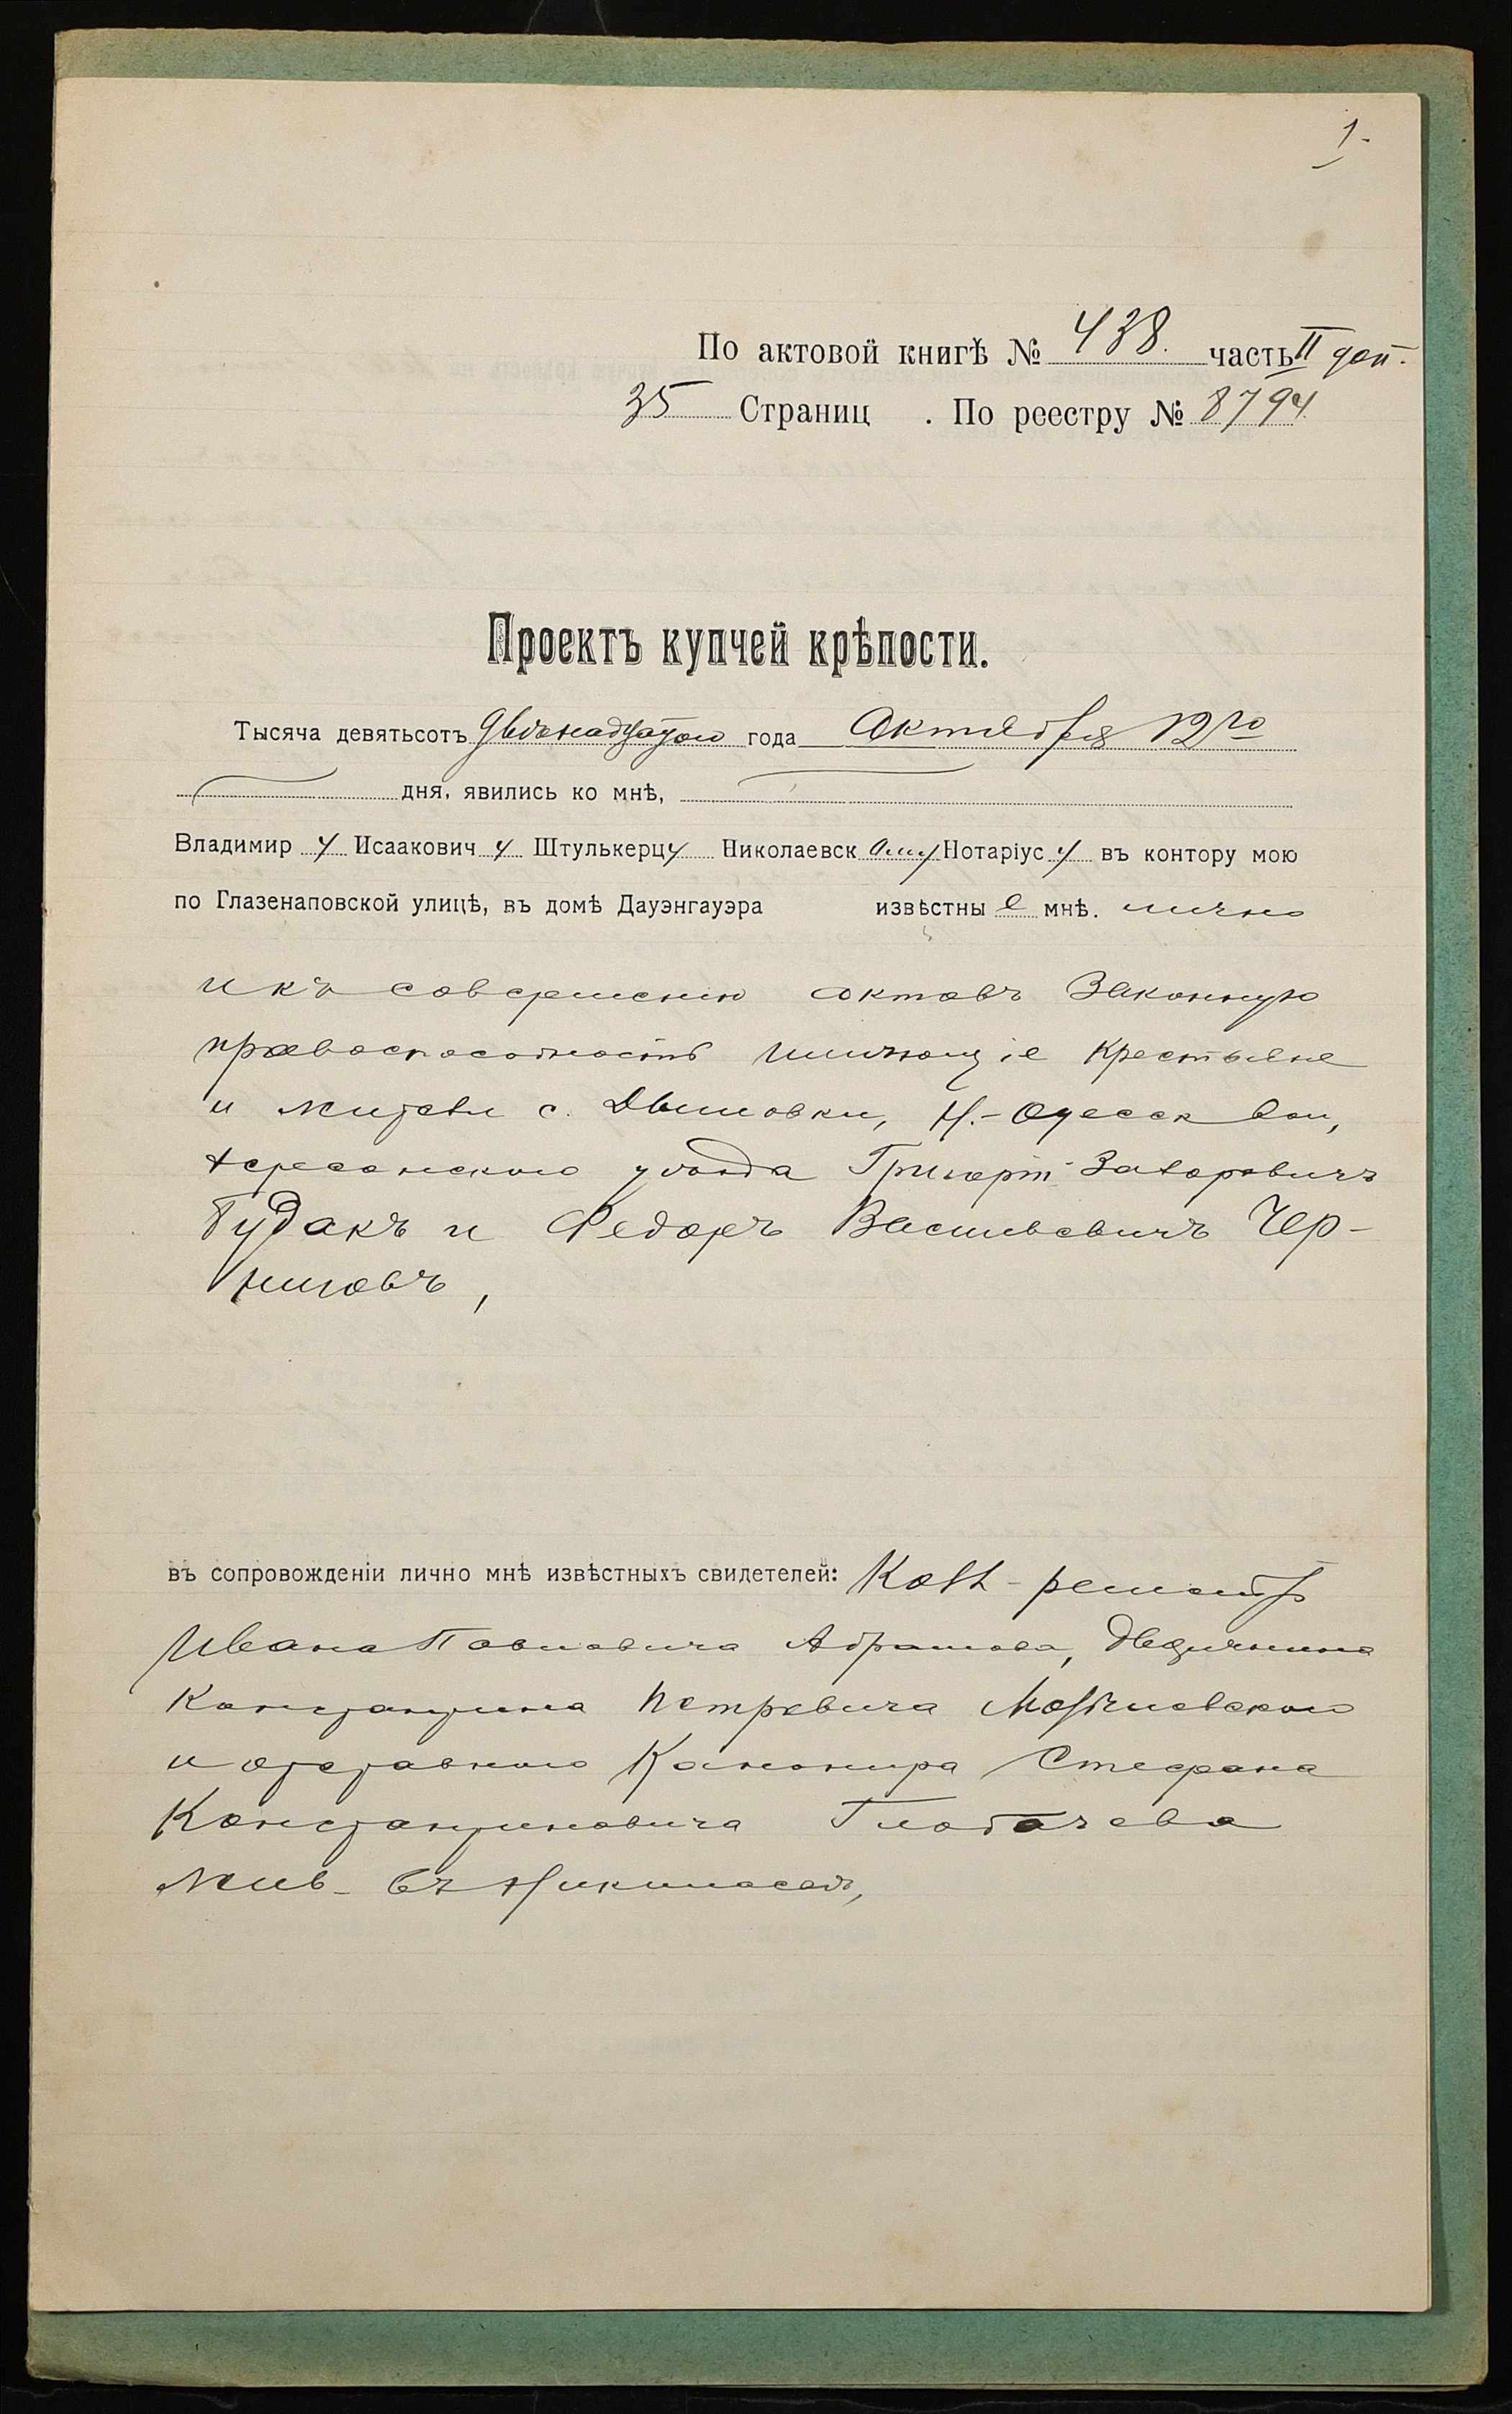 1
По актовой книгѣ № 438. часть II доп.
35 Страниц . По реестру № 8794
Проектъ купчей крѣпости.
Тысяча девятьсотъ двѣнадцатого года Октября 12го
дня, явились ко мнѣ,
Владимиру Исааковичу Штулькерцу Николаевскому Нотаріусу въ контору мою
по Глазенаповской улицѣ, въ домѣ Дауэнгауэра извѣстные мнѣ. лично
и къ совершенію актовъ законную
правоспособность имѣющіе крестьяне
и жители с. Дымовки, Н.-Одесск вол,
Херсонского уѣзда Григорій Захаровичъ
Будакъ и Федоръ Васильевичъ Чер-
ниговъ,
въ сопровожденіи лично мнѣ извѣстныхъ свидетелей: Колл-регистр
Ивана Павловича Абрамова, дворянина
Константина Петровича Могилевского
и отставного Канонира Стефана
Константиновича Глобачева
жив. въ Николаевѣ,